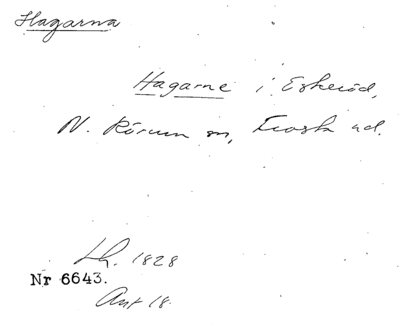 Hagarna
Hagarne i Eskeröd,
N. Rörum sn, Frosta hd.
Lh. 1828
Nr 6643.
Ant 18